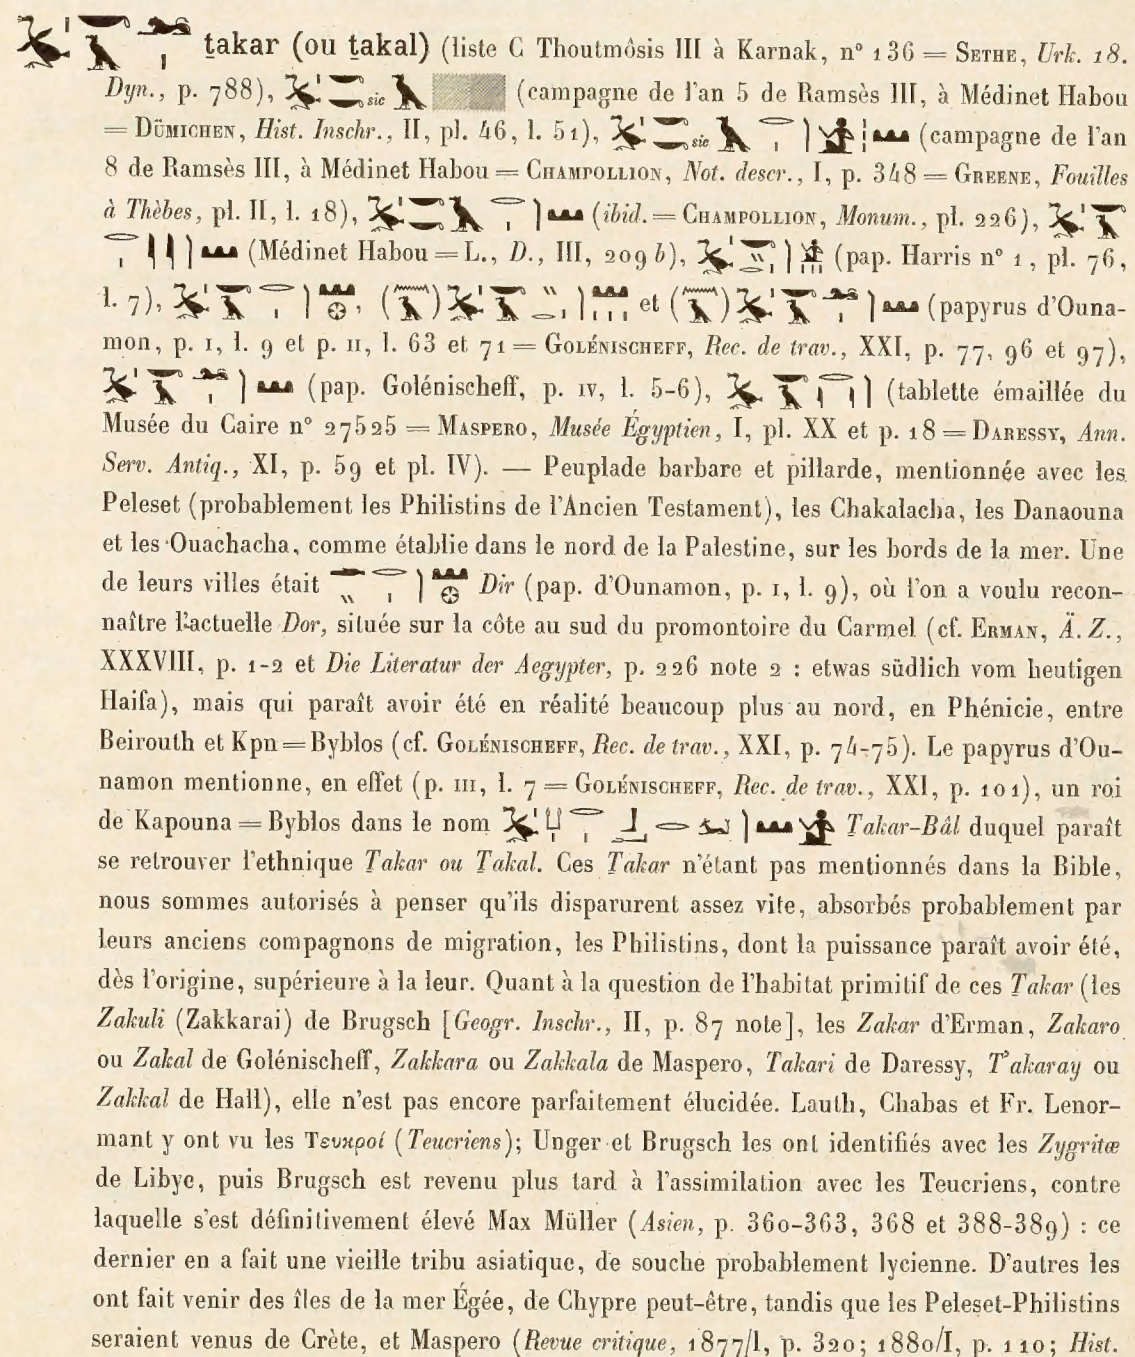 ṯakar (ou ṯakal) (liste C Thoutmôsis III à Karnak, n° 136 = SETHE, Urk. 18.
Dyn., p. 788), sic (campagne de l'an 5 de Ramsès III, à Médinet Habou
= DÜMICHEN, Hist. Inschr., II, pl. 46, l. 51), sic (campagne de l'an
8 de Ramsès III, à Médinet Habou = CHAMPOLLION, Not. descr., I, p. 348 = GREENE, Fouilles
à Thèbes, pl. II, l. 18), (ibid. = CHAMPOLLION, Monum., pl. 226),
(Médinet Habou = L., D., III, 209 b), (pap. Harris n° 1, pl. 76,
l. 7), , ( ) et ( ) (papyrus d'Ouna-
mon, p. I, l. 9 et p. II, l. 63 et 71 = GOLÉNISCHEFF, Rec. de trav., XXI, p. 77, 96 et 97),
(pap. Golénischeff, p. IV, l. 5-6), (tablette émaillée du
Musée du Caire n° 27525 = MASPERO, Musée Égyptien, I, pl. XX et p. 18 = DARESSY, Ann.
Serv. Antiq., XI, p. 59 et pl. IV). — Peuplade barbare et pillarde, mentionnée avec les
Peleset (probablement les Philistins de l'Ancien Testament), les Chakalacha, les Danaouna
et les Ouachacha, comme établie dans le nord de la Palestine, sur les bords de la mer. Une
de leurs villes était Dir (pap. d'Ounamon, p. I, l. 9), où l'on a voulu recon-
naître l'actuelle Dor, située sur la côte au sud du promontoire du Carmel (cf. ERMAN, Ä. Z.,
XXXVIII, p. 1-2 et Die Literatur der Aegypter, p. 226 note 2 : etwas südlich vom heutigen
Haifa), mais qui paraît avoir été en réalité beaucoup plus au nord, en Phénicie, entre
Beirouth et Kpn = Byblos (cf. GOLÉNISCHEFF, Rec. de trav., XXI, p. 74-75). Le papyrus d'Ou-
namon mentionne, en effet (p. III, l. 7 = GOLÉNISCHEFF, Rec. de trav., XXI, p. 101), un roi
de Kapouna = Byblos dans le nom Ṯakar-Bâl duquel paraît
se retrouver l'ethnique Ṯakar ou Ṯakal. Ces Ṯakar n'étant pas mentionnés dans la Bible,
nous sommes autorisés à penser qu'ils disparurent assez vite, absorbés probablement par
leurs anciens compagnons de migration, les Philistins, dont la puissance paraît avoir été,
dès l'origine, supérieure à la leur. Quant à la question de l'habitat primitif de ces Ṯakar (les
Zakuli (Zakkarai) de Brugsch [Geogr. Inschr., II, p. 87 note], les Zakar d'Erman, Zakaro
ou Zakal de Golénischeff, Zakkara ou Zakkala de Maspero, Takari de Daressy, T'akaray ou
Zakkal de Hall), elle n'est pas encore parfaitement élucidée. Lauth, Chabas et Fr. Lenor-
mant y ont vu les Τευκροί (Teucriens); Unger et Brugsch les ont identifiés avec les Zygritæ
de Libye, puis Brugsch est revenu plus tard à l'assimilation avec les Teucriens, contre
laquelle s'est définitivement élevé Max Müller (Asien, p. 360-363, 368 et 388-389) : ce
dernier en a fait une vieille tribu asiatique, de souche probablement lycienne. D'autres les
ont fait venir des îles de la mer Égée, de Chypre peut-être, tandis que les Peleset-Philistins
seraient venus de Crète, et Maspero (Revue critique, 1877/I, p. 320; 1880/I, p. 110; Hist.